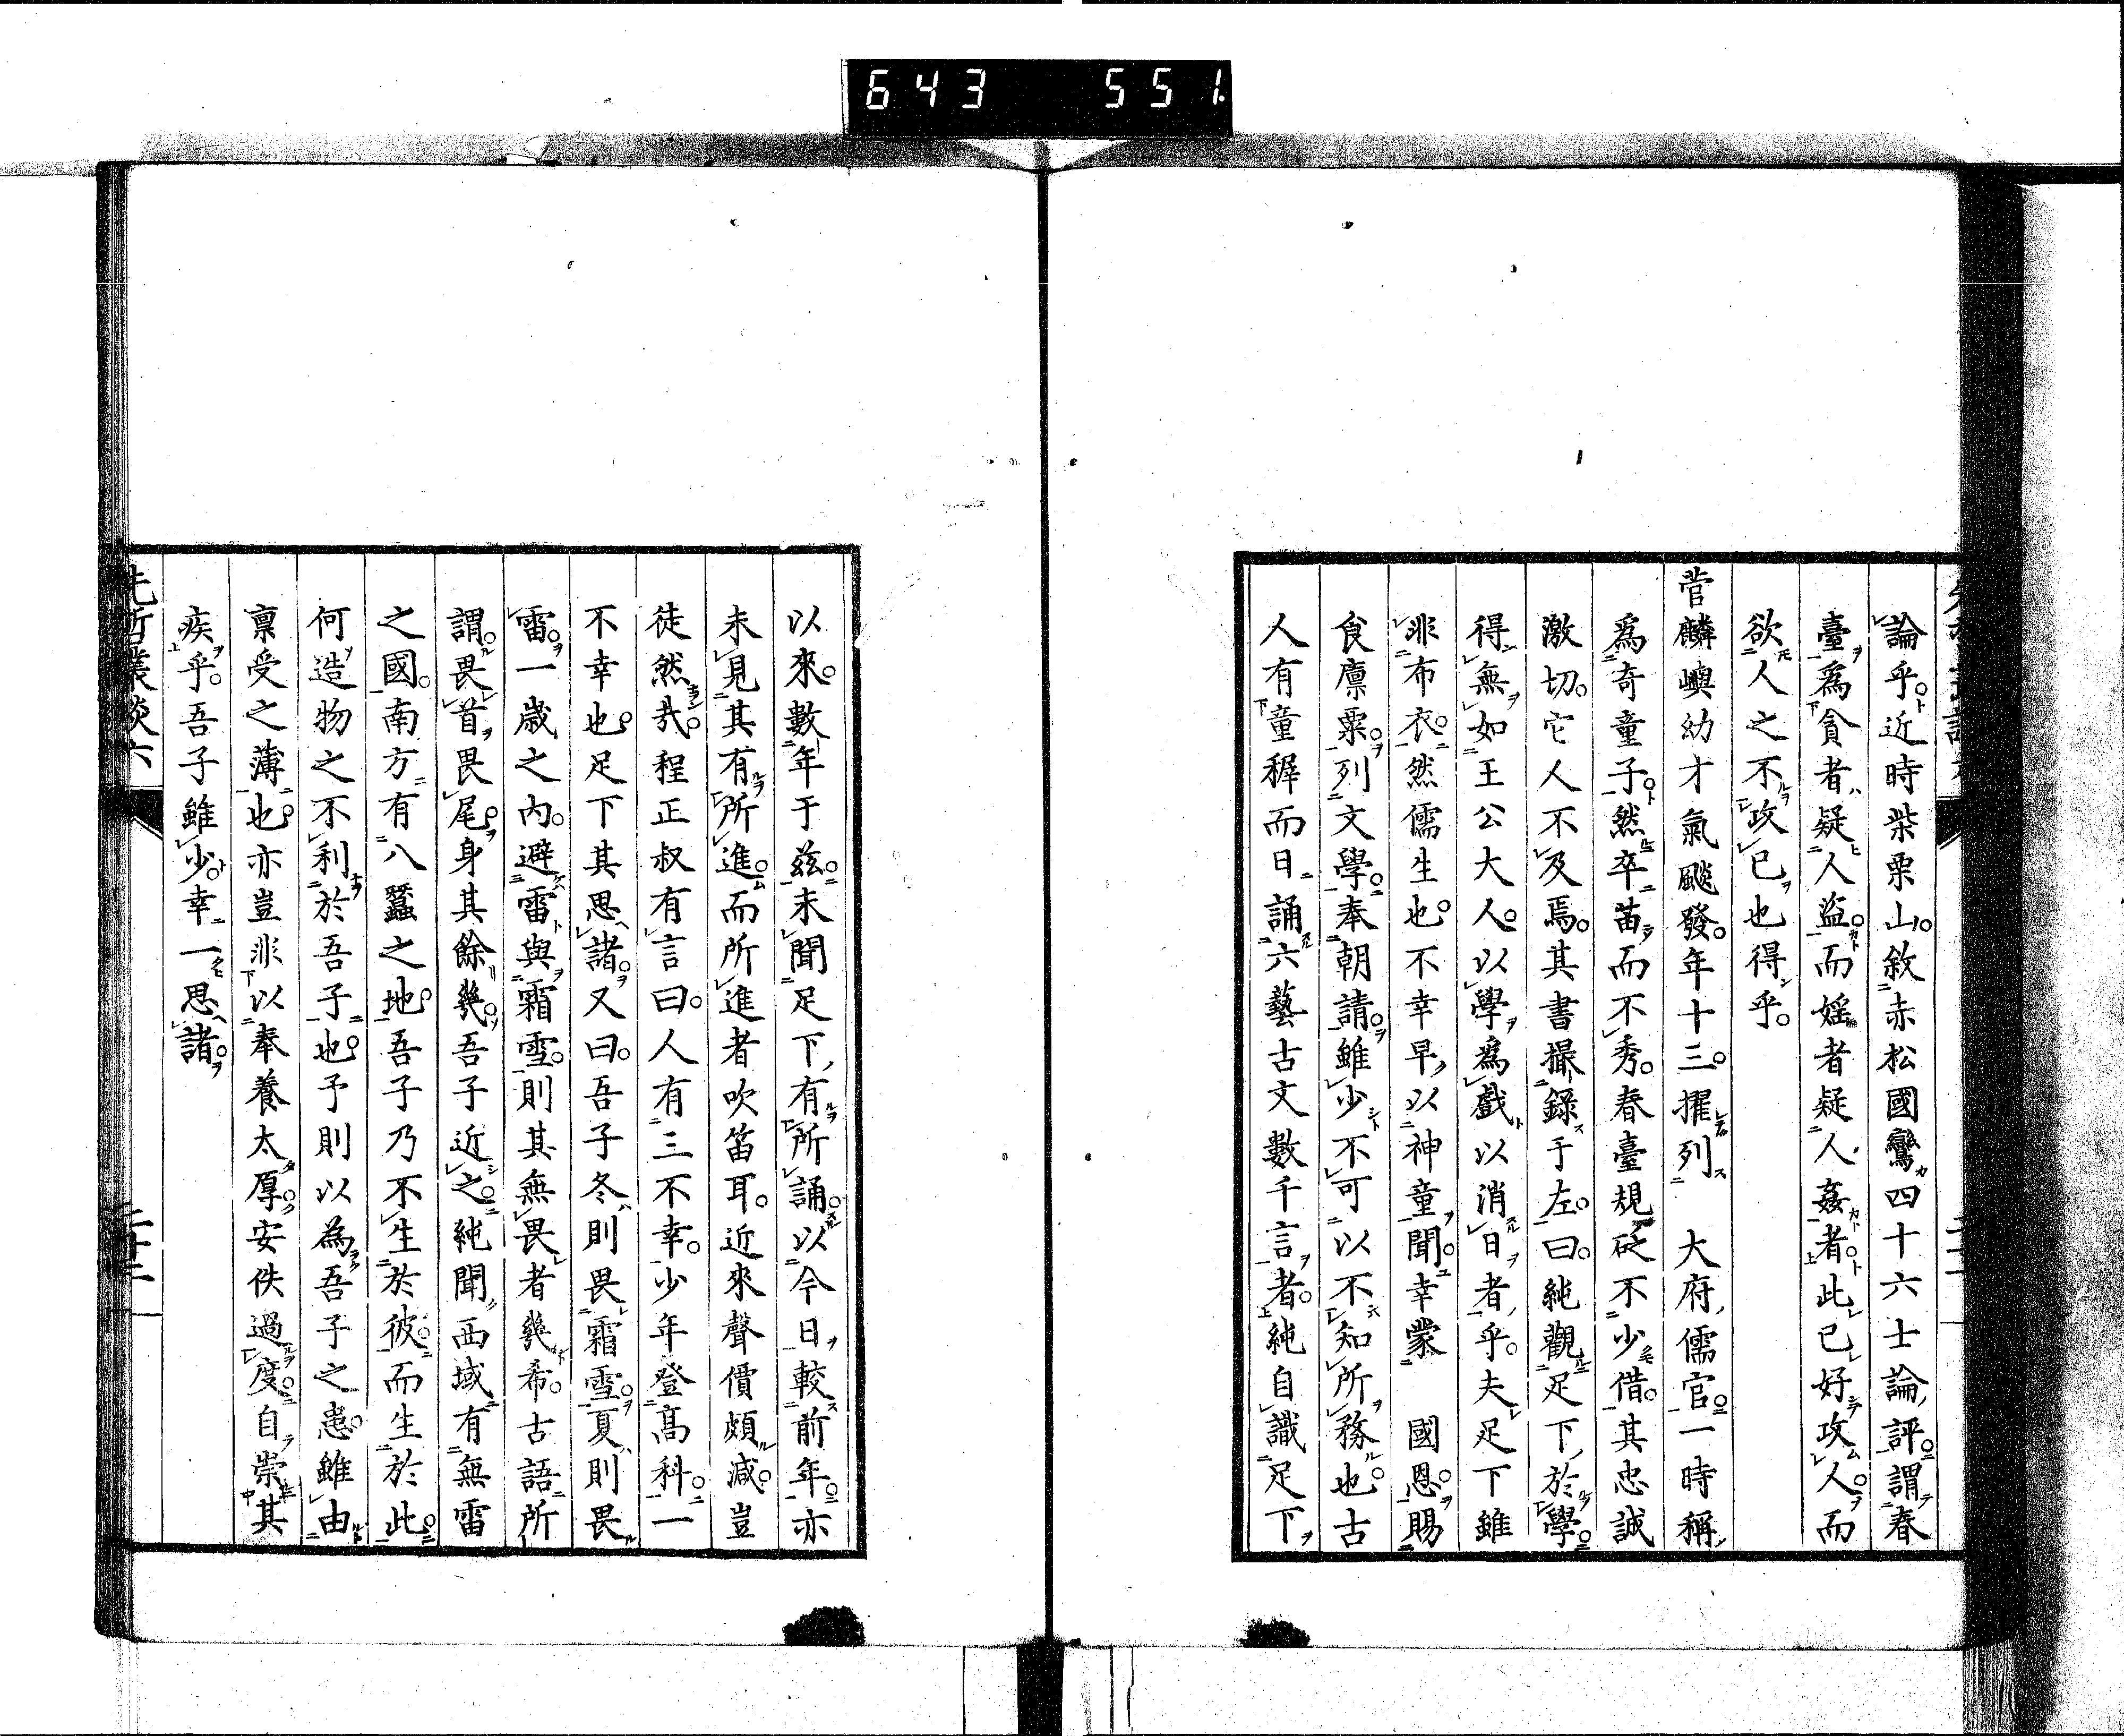 643 551.
論乎近時柴栗山敘赤松國鸞四十六士論評謂春
臺爲貪者疑人盜而婬者疑人姦者此已好攻人而
欲人之不攻已也得乎
菅麟嶼幼才氣颷發年十三擢列　大府儒官一時稱
爲奇童子然卒苗而不秀春臺規砭不少借其忠誠
激切它人不及焉其書撮錄于左曰純觀足下於學
得無如王公大人以學爲戲以消日者乎夫足下雖
非布衣然儒生也不幸早以神童聞幸蒙　國恩賜
食廩粟列文學奉朝請雖少不可以不知所務也古
人有童穉而日誦六藝古文數千言者純自識足下
以來數年于茲未聞足下有所誦以今日較前年亦
未見其有所進而所進者吹笛耳近來聲價頗減豈
徒然哉程正叔有言曰人有三不幸少年登高科一
不幸也足下其思諸又曰吾子冬則畏霜雪夏則畏
雷一歲之內避雷與霜雪則其無畏者幾希古語所
謂畏首畏尾身其餘幾吾子近之純聞西域有無雷
之國南方有八蠶之地吾子乃不生於彼而生於此
何造物之不利於吾子也予則以為吾子之患雖由
禀受之薄也亦豈非以奉養太厚安佚過度自崇其
疾乎吾子雖少幸一思諸
先哲叢談六